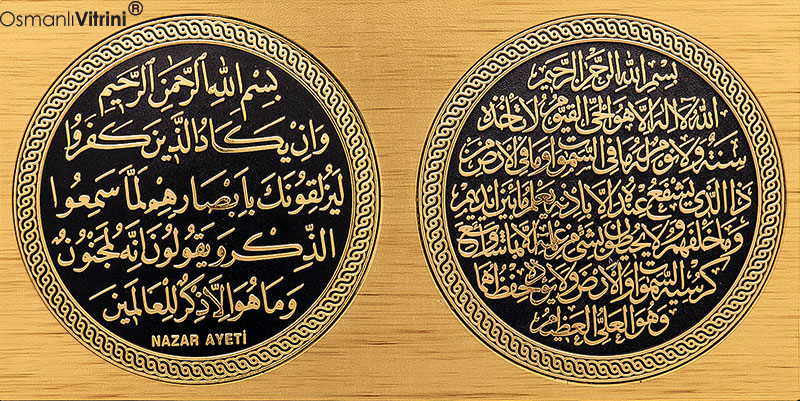 OsmanlıVitrini®
بسم الله الرحمن الرحيم
وان يكاد الذين كفروا
ليزلقونك بابصارهم لما سمعوا
الذكر ويقولون انه لمجنون
وما هو الا ذكر للعالمين
NAZAR AYETİ
بسم الله الرحمن الرحيم
الله لا اله الا هو الحي القيوم لا تأخذه
سنة ولا نوم له ما في السموات وما في الارض من
ذا الذي يشفع عنده الا باذنه يعلم ما بين ايديهم
وما خلفهم ولا يحيطون بشئ من علمه الا بما شاء وسع
كرسيه السموات والارض ولا يؤده حفظهما
وهو العلي العظيم